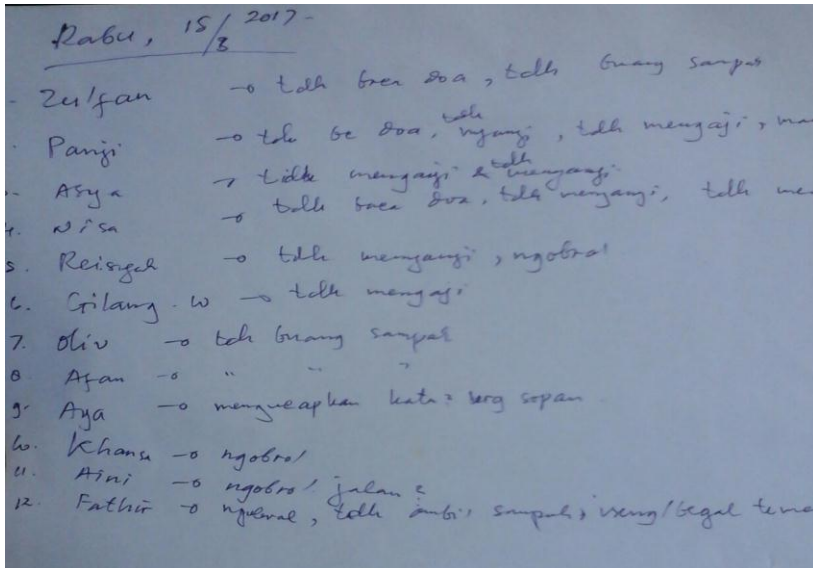 Rabu, 15/8 2017
Zulfan → tdk baca doa, tdk buang sampah
Panji → tdk doa, tdk nyanyi, tdk mengaji,
Asya → tidk mengaji & tdk menyanyi
4. Nisa → tdk baca doa, tdk menyanyi, tdk
5. → tdk menyanyi, ngobrol
6. Gilang. W → tdk mengaji
7. Oliv → tdk buang sampah
8 Afan → " " "
9. Aya → mengucapkan kata2 sopan
10. Khansa → ngobrol
11. Aini → ngobrol jalan2
12. Fathir → tdk ambil sampah, iseng/